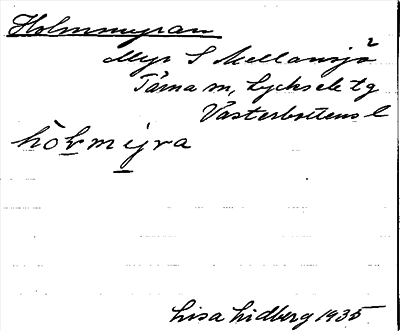 Holmmyran
Myr S Mellansjö
Tärna sn, Lycksele tg
Västerbottens l
hòḷmi̱ra
Lisa Lidberg 1935